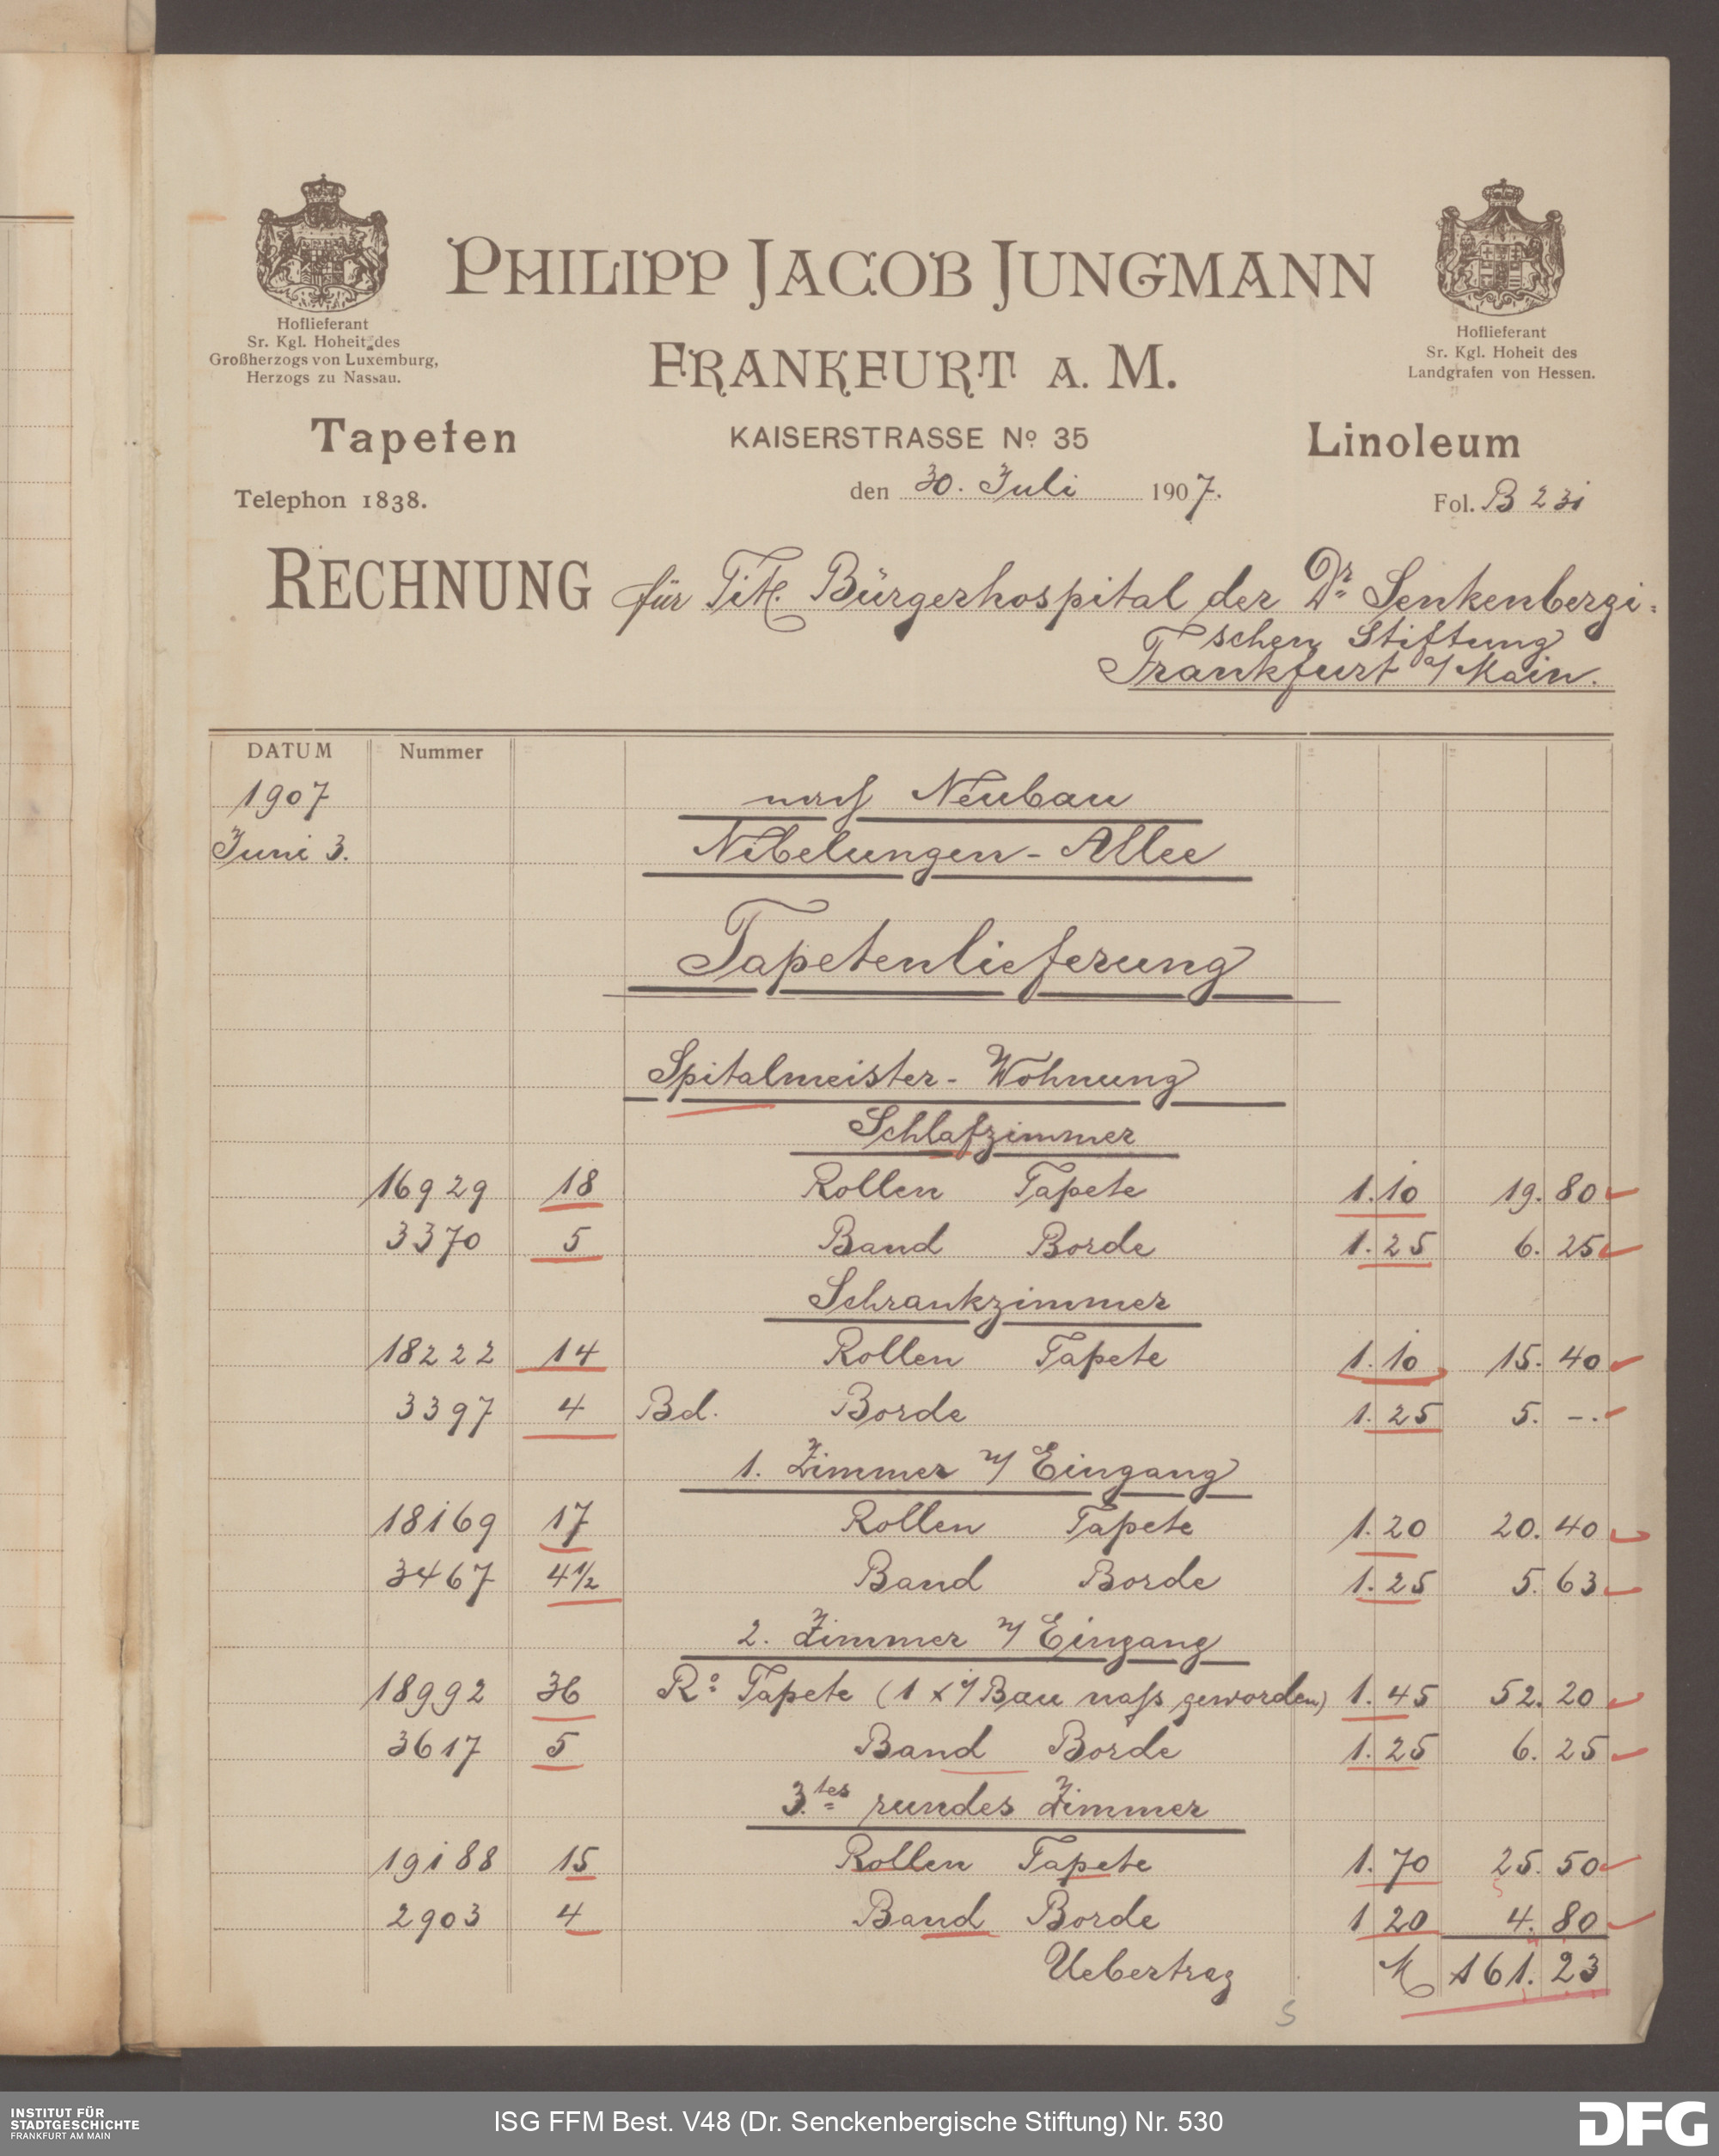 Hoflieferant
Sr. Kgl. Hoheit des
Großherzogs von Luxemburg,
Herzogs zu Nassau.
PHILIPP JACOB JUNGMANN
FRANKFURT A. M.
Hoflieferant
Sr. Kgl. Hoheit des
Landgrafen von Hessen.
Tapeten
KAISERSTRASSE No 35
Linoleum
Telephon 1838.
den 30. Juli 1907.
Fol. B 231
RECHNUNG für Titl. Bürgerhospital der Dr. Senkenbergi=
schen Stiftung
Frankfurt a/Main.
DATUM Nummer
1907 nach Neubau
Juni 3. Nibelungen-Allee
Tapetenlieferung
Spitalmeister-Wohnung
Schlafzimmer
16929 18 Rollen Tapete 1.10 19.80
3370 5 Band Borde 1.25 6.25
Schrankzimmer
18222 14 Rollen Tapete 1.10 15.40
3397 4 Bd. Borde 1.25 5.-.
1. Zimmer v/ Eingang
18169 17 Rollen Tapete 1.20 20.40
3467 4 1/2 Band Borde 1.25 5.63
2. Zimmer v/ Eingang
18992 36 Ro Tapete (1 x i/ Bau naß geworden) 1.45 52.20
3617 5 Band Borde 1.25 6.25
3.tes rundes Zimmer
19188 15 Rollen Tapete 1.70 25.50
2903 4 Band Borde 1 20 4.80
Uebertrag M 161.23
5
INSTITUT FÜR
STADTGESCHICHTE
FRANKFURT AM MAIN
ISG FFM Best. V48 (Dr. Senckenbergische Stiftung) Nr. 530
DFG